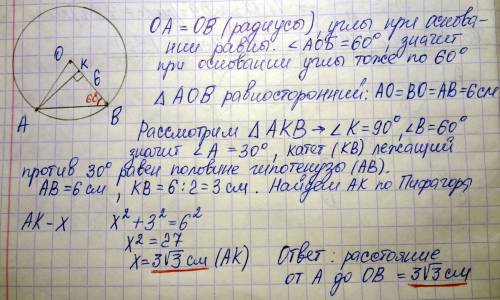 OA = OB (радиусы), углы при основа-
нии равны. ∠AOB = 60°, значит
при основании углы тоже по 60°
△ AOB равносторонний: AO=BO=AB=6см
Рассмотрим △ AKB → ∠K=90°, ∠B=60°
значит ∠A = 30°, катет (KB) лежащий
против 30° равен половине гипотенузы (AB).
AB=6 см, KB = 6:2=3 см. Найдем AK по Пифагору
AK - x
x² + 3² = 6²
x² = 27
x = 3√3 см (AK)
Ответ: расстояние
от A до OB = 3√3 см
O
K
6
60°
A
B